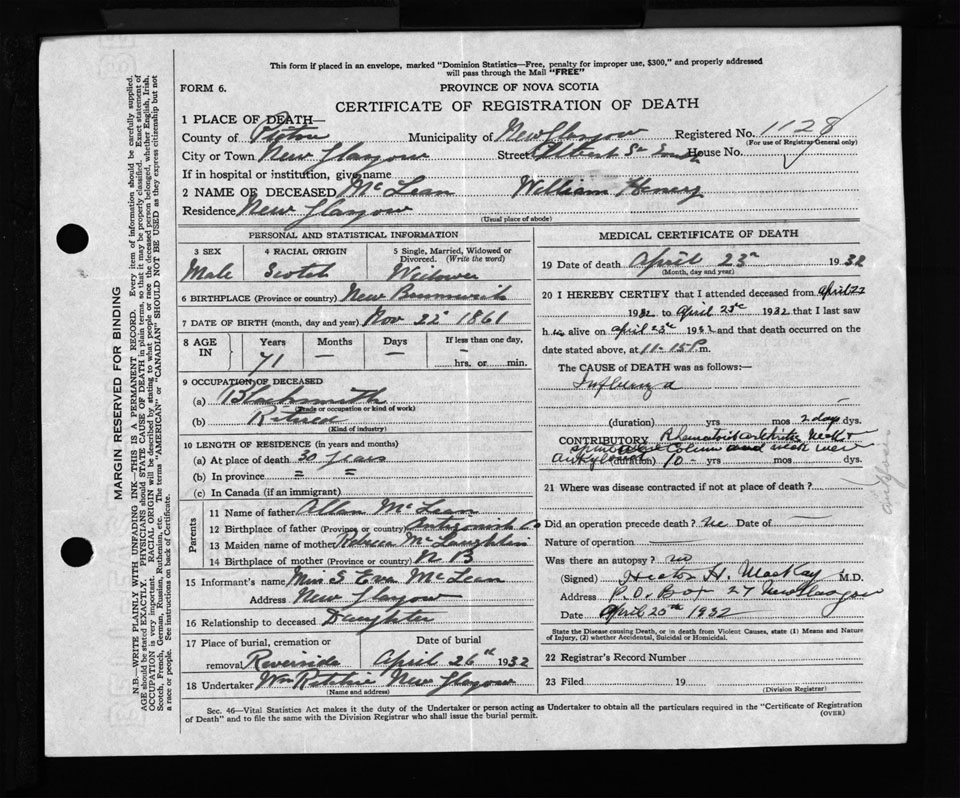 This form if placed in an envelope, marked "Dominion Statistics—Free, penalty for improper use, $300," and properly addressed
will pass through the Mail "FREE"
FORM 6.
PROVINCE OF NOVA SCOTIA
CERTIFICATE OF REGISTRATION OF DEATH
1 PLACE OF DEATH—
County of Pictou Municipality of New Glasgow Registered No. 1128
(For use of Registrar General only)
City or Town New Glasgow Street Albert St House No.
If in hospital or institution, give name
2 NAME OF DECEASED McLean William Henry
Residence New Glasgow
(Usual place of abode)
PERSONAL AND STATISTICAL INFORMATION
3 SEX 4 RACIAL ORIGIN 5 Single, Married, Widowed or Divorced. (Write the word)
Male Scotch Widower
6 BIRTHPLACE (Province or country) New Brunswick
7 DATE OF BIRTH (month, day and year) Nov 22 1861
8 AGE IN Years Months Days If less than one day,
71 — — — hrs. or min.
9 OCCUPATION OF DECEASED
(a) Blacksmith
(Trade or occupation or kind of work)
(b) Retired
(Kind of industry)
10 LENGTH OF RESIDENCE (in years and months)
(a) At place of death 30 years
(b) In province " "
(c) In Canada (if an immigrant)
Parents
11 Name of father Allan McLean
12 Birthplace of father (Province or country) Antigonish Co
13 Maiden name of mother Rebecca McLaughlin
14 Birthplace of mother (Province or country) N B
15 Informant's name Miss E Eva McLean
Address New Glasgow
16 Relationship to deceased Daughter
17 Place of burial, cremation or removal Riverside Date of burial April 26th 1932
18 Undertaker Wm Ritchie New Glasgow
(Name and address)
MEDICAL CERTIFICATE OF DEATH
19 Date of death April 23rd 1932
(Month, day and year)
20 I HEREBY CERTIFY that I attended deceased from April 22
1932 to April 23rd 1932 that I last saw
him alive on April 23rd 1932 and that death occurred on the
date stated above, at 11-15 P.m.
The CAUSE of DEATH was as follows:
Influenza
(duration) yrs mos 2 days dys.
CONTRIBUTORY Rheumatoid arthritis neck &
spinal column
(duration) 10 - yrs mos dys.
21 Where was disease contracted if not at place of death?
Did an operation precede death? No Date of —
Nature of operation —
Was there an autopsy? no
(Signed) Hector H. MacKay M.D.
Address P.O. Box 27 New Glasgow
Date April 25th 1932
State the Disease causing Death, or in death from Violent Causes, state (1) Means and Nature
of Injury, (2) whether Accidental, Suicidal or Homicidal.
22 Registrar's Record Number
23 Filed 19
(Division Registrar)
Sec. 46—Vital Statistics Act makes it the duty of the Undertaker or person acting as Undertaker to obtain all the particulars required in the "Certificate of Registration
of Death" and to file the same with the Division Registrar who shall issue the burial permit.
(OVER)
MARGIN RESERVED FOR BINDING
N.B.—WRITE PLAINLY WITH UNFADING INK—THIS IS A PERMANENT RECORD. Every item of information should be carefully supplied.
AGE should be stated EXACTLY. PHYSICIANS should STATE CAUSE OF DEATH in plain terms, so that it may be properly classified. Exact statement of
OCCUPATION is very important. RACIAL ORIGIN will be described by stating to what people or race the deceased person belonged, whether English, Irish,
Scotch, French, German, Russian, Ruthenian, etc. The terms "AMERICAN" or "CANADIAN" SHOULD NOT BE USED as they express citizenship but not
a race or people. See instructions on back of Certificate.